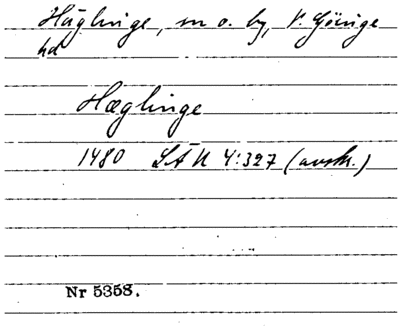 Häglinge, sn o. by, V. Göinge
hd
Hæglinge
1480 LÄU 4:327 (avskr.)
Nr 5358.